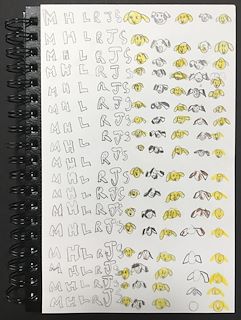 M H L R J S
M H L R J S
M H L R J S
M H L R J S
M H L R J S
M H L R J S
M H L R J S
M H L R J S
M H L R J S
M H L R J S
M H L R J S
M H L R J S
M H L R J S
M H L R J S
M H L R J S
M H L R J S
M H L R J S